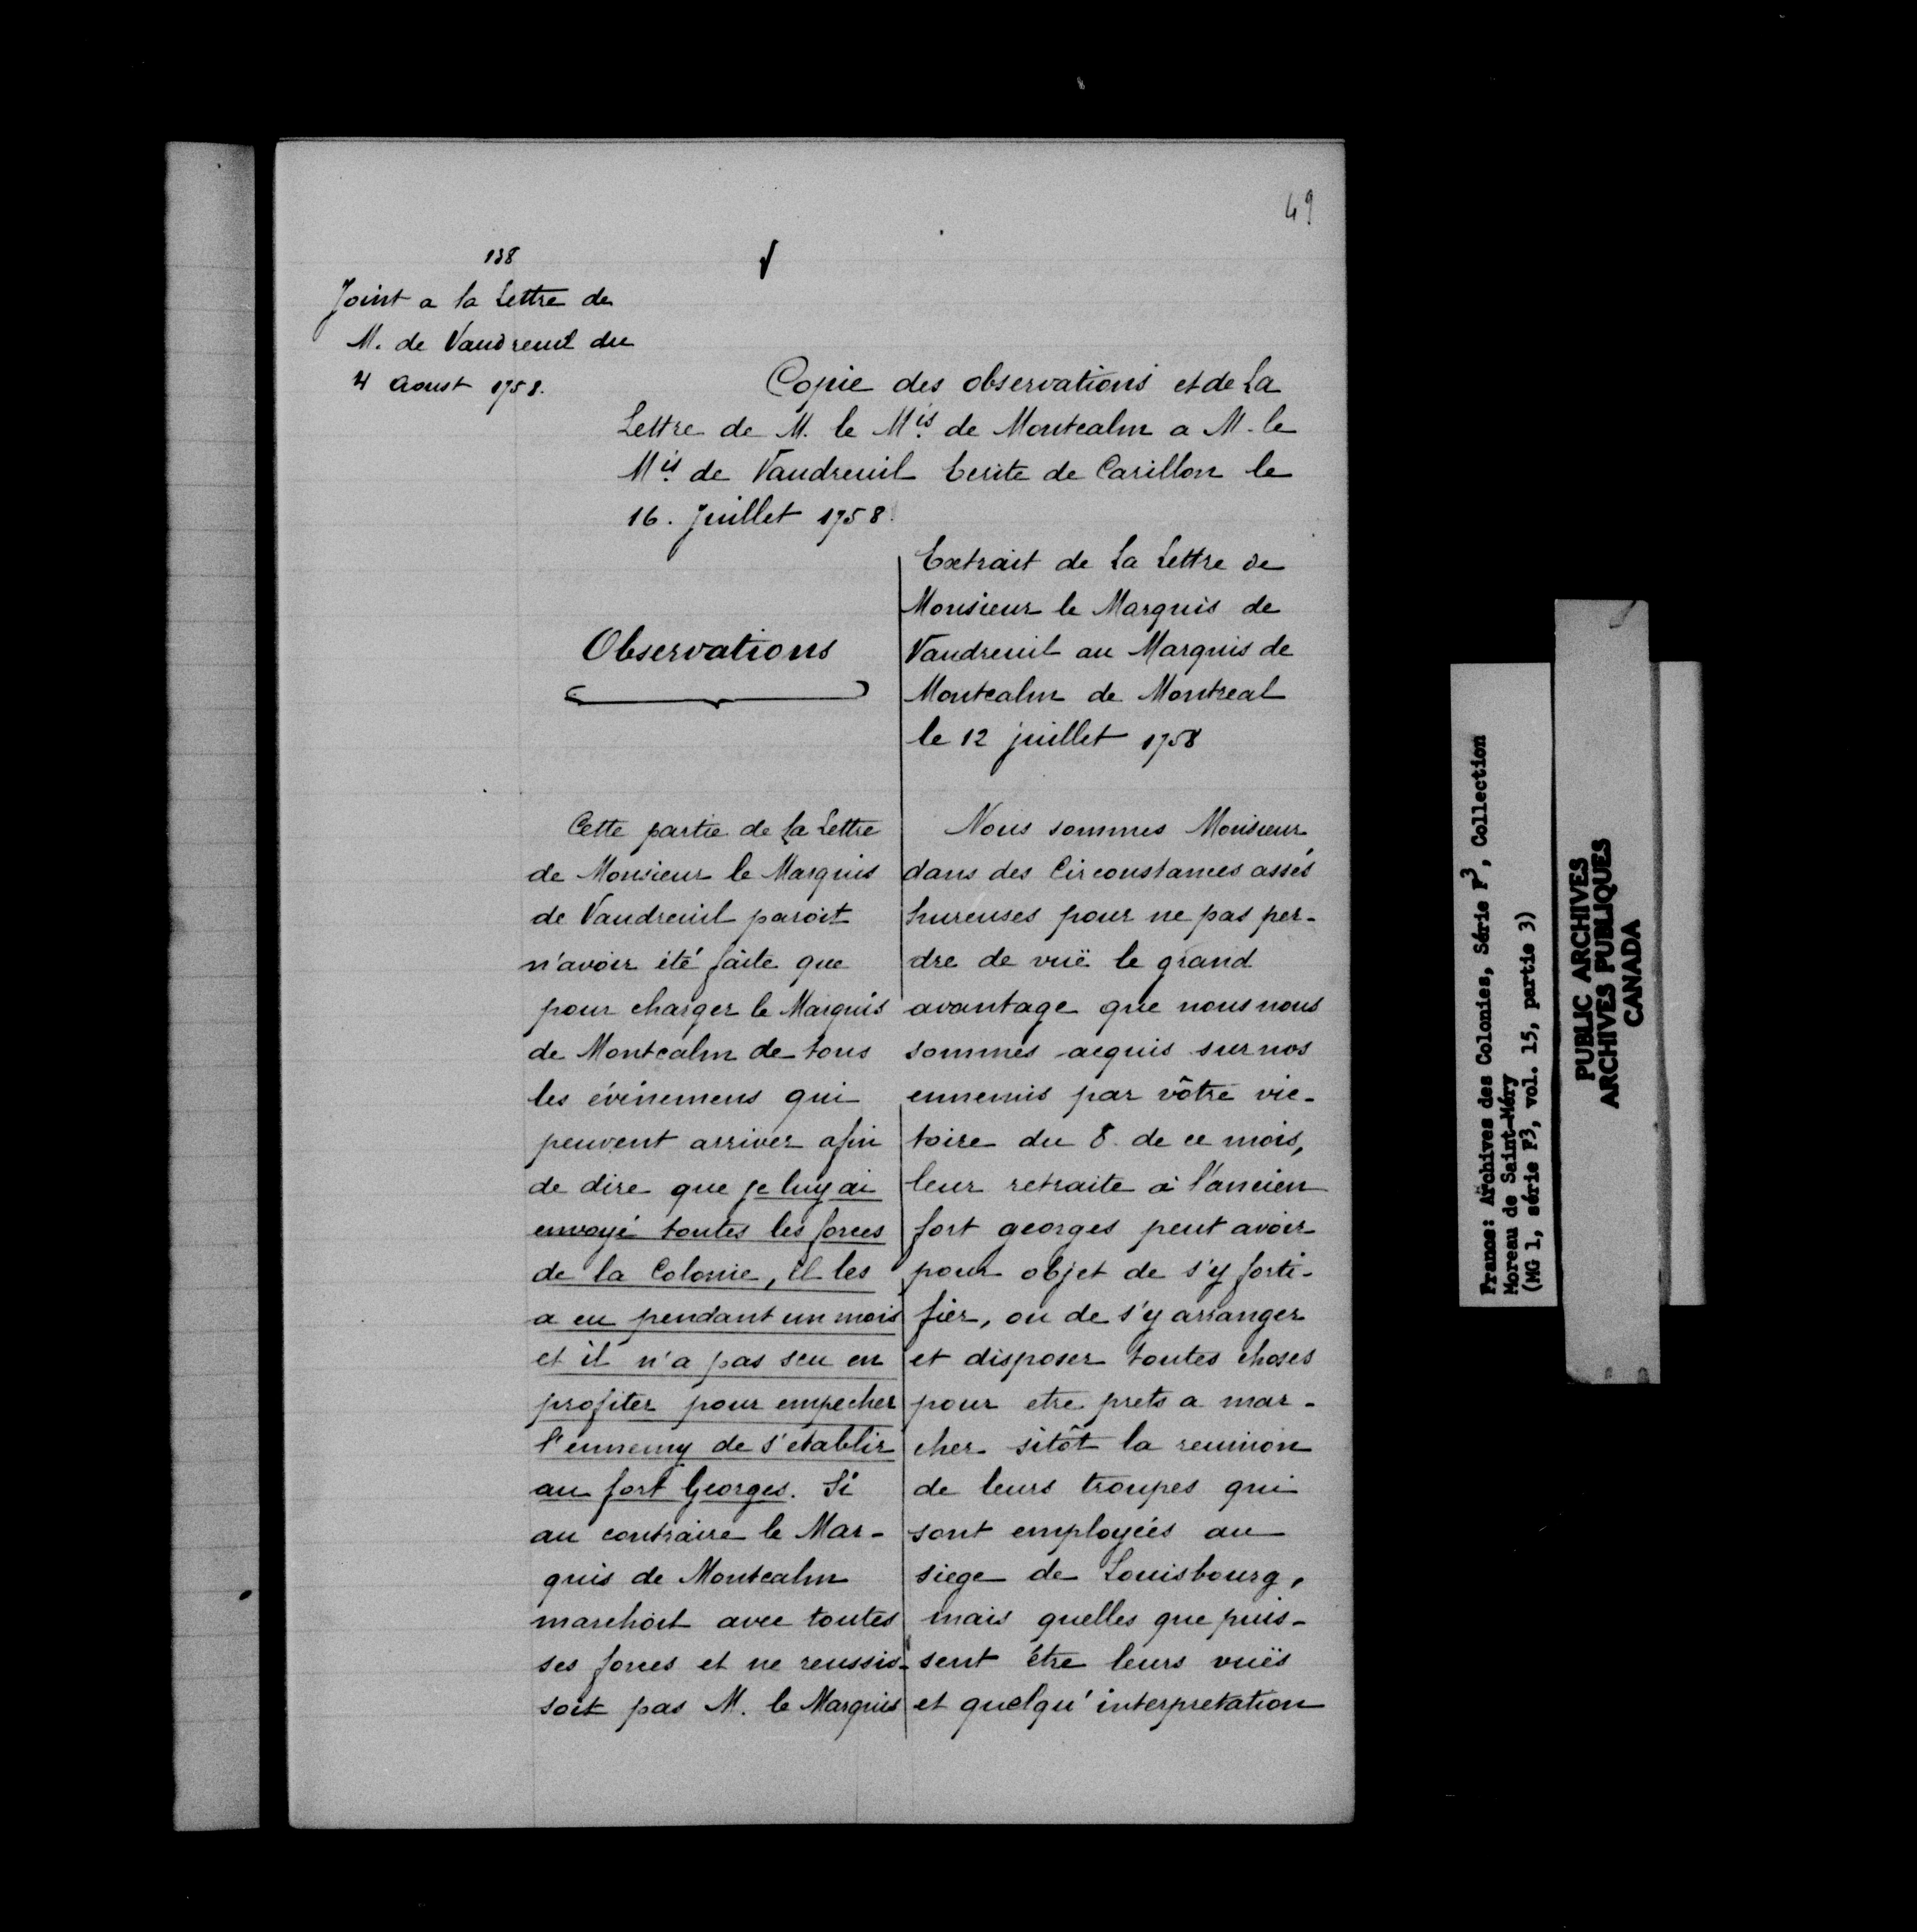 49
138
Joint a la Lettre de
M. de Vaudreuil du
4 Aoust 1758.
Copie des observations et de La
Lettre de M. le Mis de Montcalm a M. le
Mis de Vaudreuil Ecrite de Carillon le
16. Juillet 1758.
Observations
Cette partie de La Lettre
de Monsieur le Marquis
de Vaudreuil paroit
n'avoir été faite que
pour charger le Marquis
de Montcalm de tous
les événemens qui
peuvent arriver afin
de dire que je luy ai
envoyé toutes les forces
de la Colonie, il les
a eu pendant un mois
et il n'a pas scu en
profiter pour empecher
l'ennemy de s'etablir
au fort Georges. Si
au contraire le Mar-
quis de Montcalm
marchoit avec toutes
ses forces et ne reussis-
soit pas M. le Marquis
Extrait de La Lettre de
Monsieur le Marquis de
Vaudreuil au Marquis de
Montcalm de Montreal
le 12 juillet 1758
Nous sommes Monsieur,
dans des Circonstances assés
hureuses pour ne pas per-
dre de vuë le grand
avantage que nous nous
sommes acquis sur nos
ennemis par vôtre vic-
toire du 8. de ce mois,
leur retraite à l'ancien
fort georges peut avoir
pour objet de s'y forti-
fier, ou de s'y arranger
et disposer toutes choses
pour etre prets a mar-
cher sitôt la reunion
de leurs troupes qui
sont employées au
siege de Louisbourg,
mais quelles que puis-
sent être leurs vuës
et quelqu'interpretation
France: Archives des Colonies, Série F3, Collection
Moreau de Saint-Méry
(MG 1, série F3, vol. 15, partie 3)
PUBLIC ARCHIVES
ARCHIVES PUBLIQUES
CANADA